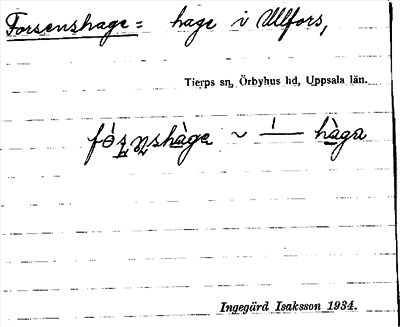 Forsenshage = hage i Ullfors,
Tierps sn, Örbyhus hd, Uppsala län.
fó̱ꞩn̥shàge ~ —́ hàga
Ingegärd Isaksson 1934.